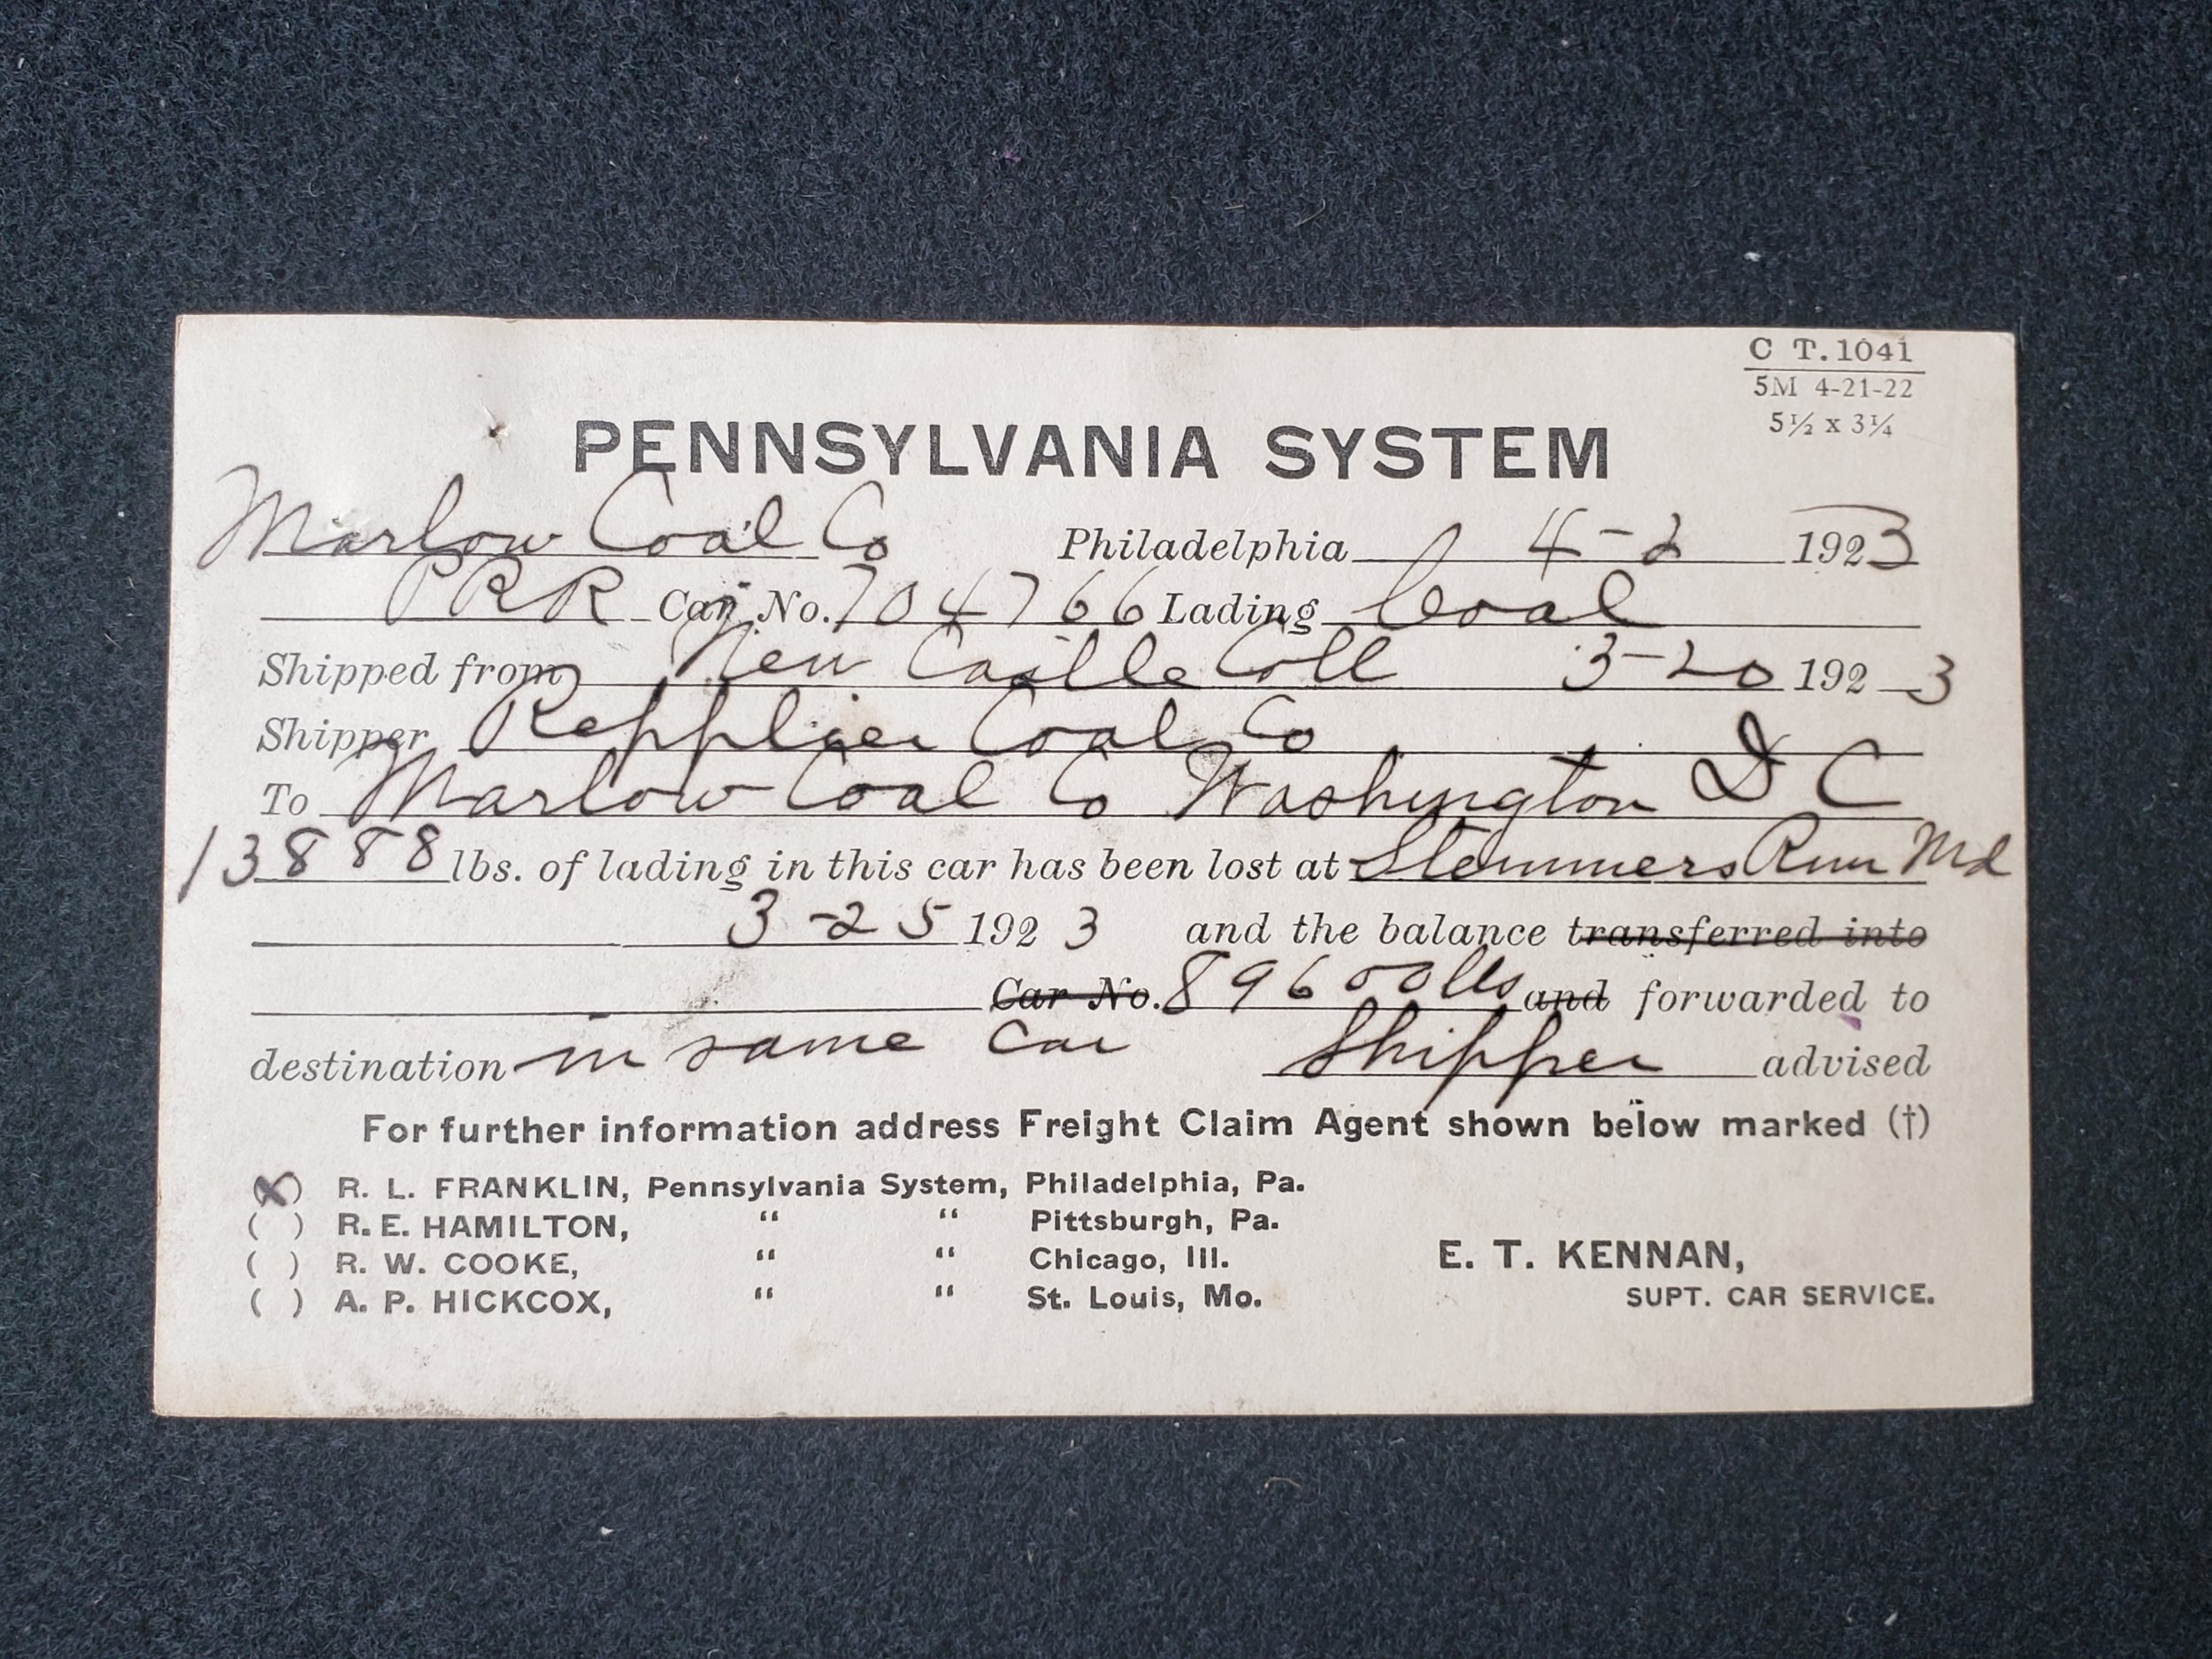 C T. 1041
5M 4-21-22
5½ x 3¼
PENNSYLVANIA SYSTEM
Marlow Coal Co Philadelphia 4-2 1923
PRR Car No. 704766 Lading Coal
Shipped from New Castle Coll 3-20 1923
Shipper Repplier Coal Co
To Marlow Coal Co Washington D C
13888 lbs. of lading in this car has been lost at Stemmers Run Md
3-25 1923 and the balance transferred into
Car No. 89600 lbs and forwarded to
destination in same car Shipper advised
For further information address Freight Claim Agent shown below marked (†)
(X) R. L. FRANKLIN, Pennsylvania System, Philadelphia, Pa.
( ) R. E. HAMILTON, " " Pittsburgh, Pa.
( ) R. W. COOKE, " " Chicago, Ill.
( ) A. P. HICKCOX, " " St. Louis, Mo.
E. T. KENNAN,
SUPT. CAR SERVICE.